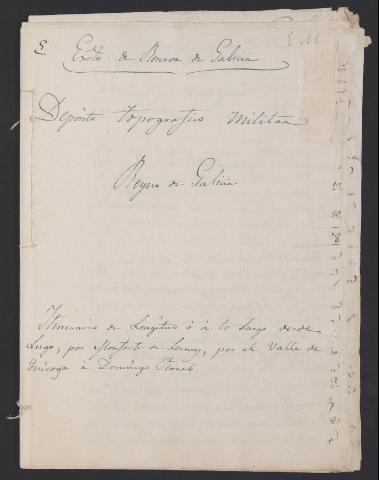 E. M
Exto. de Reserva de Galicia
Depósito topografico militar
Reyno de Galicia
Itinerario de Longitud ó á lo largo desde
Lugo, por Monforte de Lemus, por el Valle de
Quiroga a Domingo Florez.